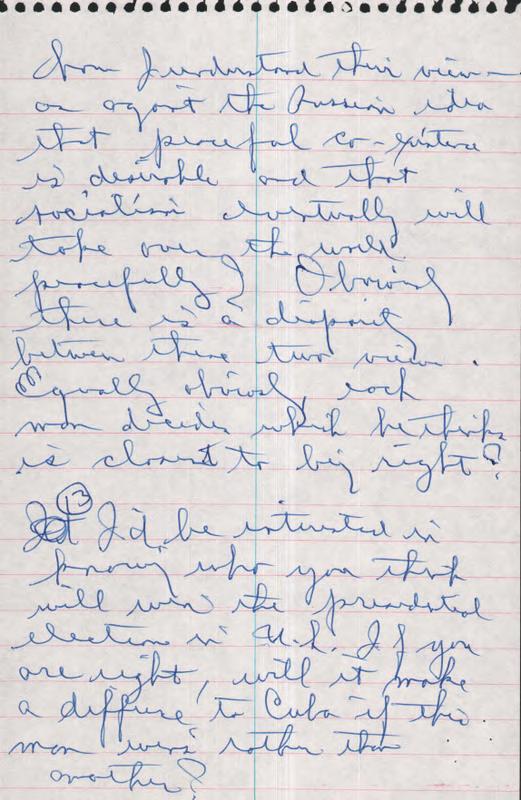 from I understand their view—
as against the Russian idea
that peaceful co-existence
is desirable and that
socialism eventually will
take over the world
peacefully? Obviously
there is a disparity
between these two views.
Equally obviously, each
man decides which he thinks
is closest to being right?
(13) I'd be interested in
knowing who you think
will win the presidential
election in U.S. If you
are right, will it make
a difference to Cuba if this
man wins rather than
another?